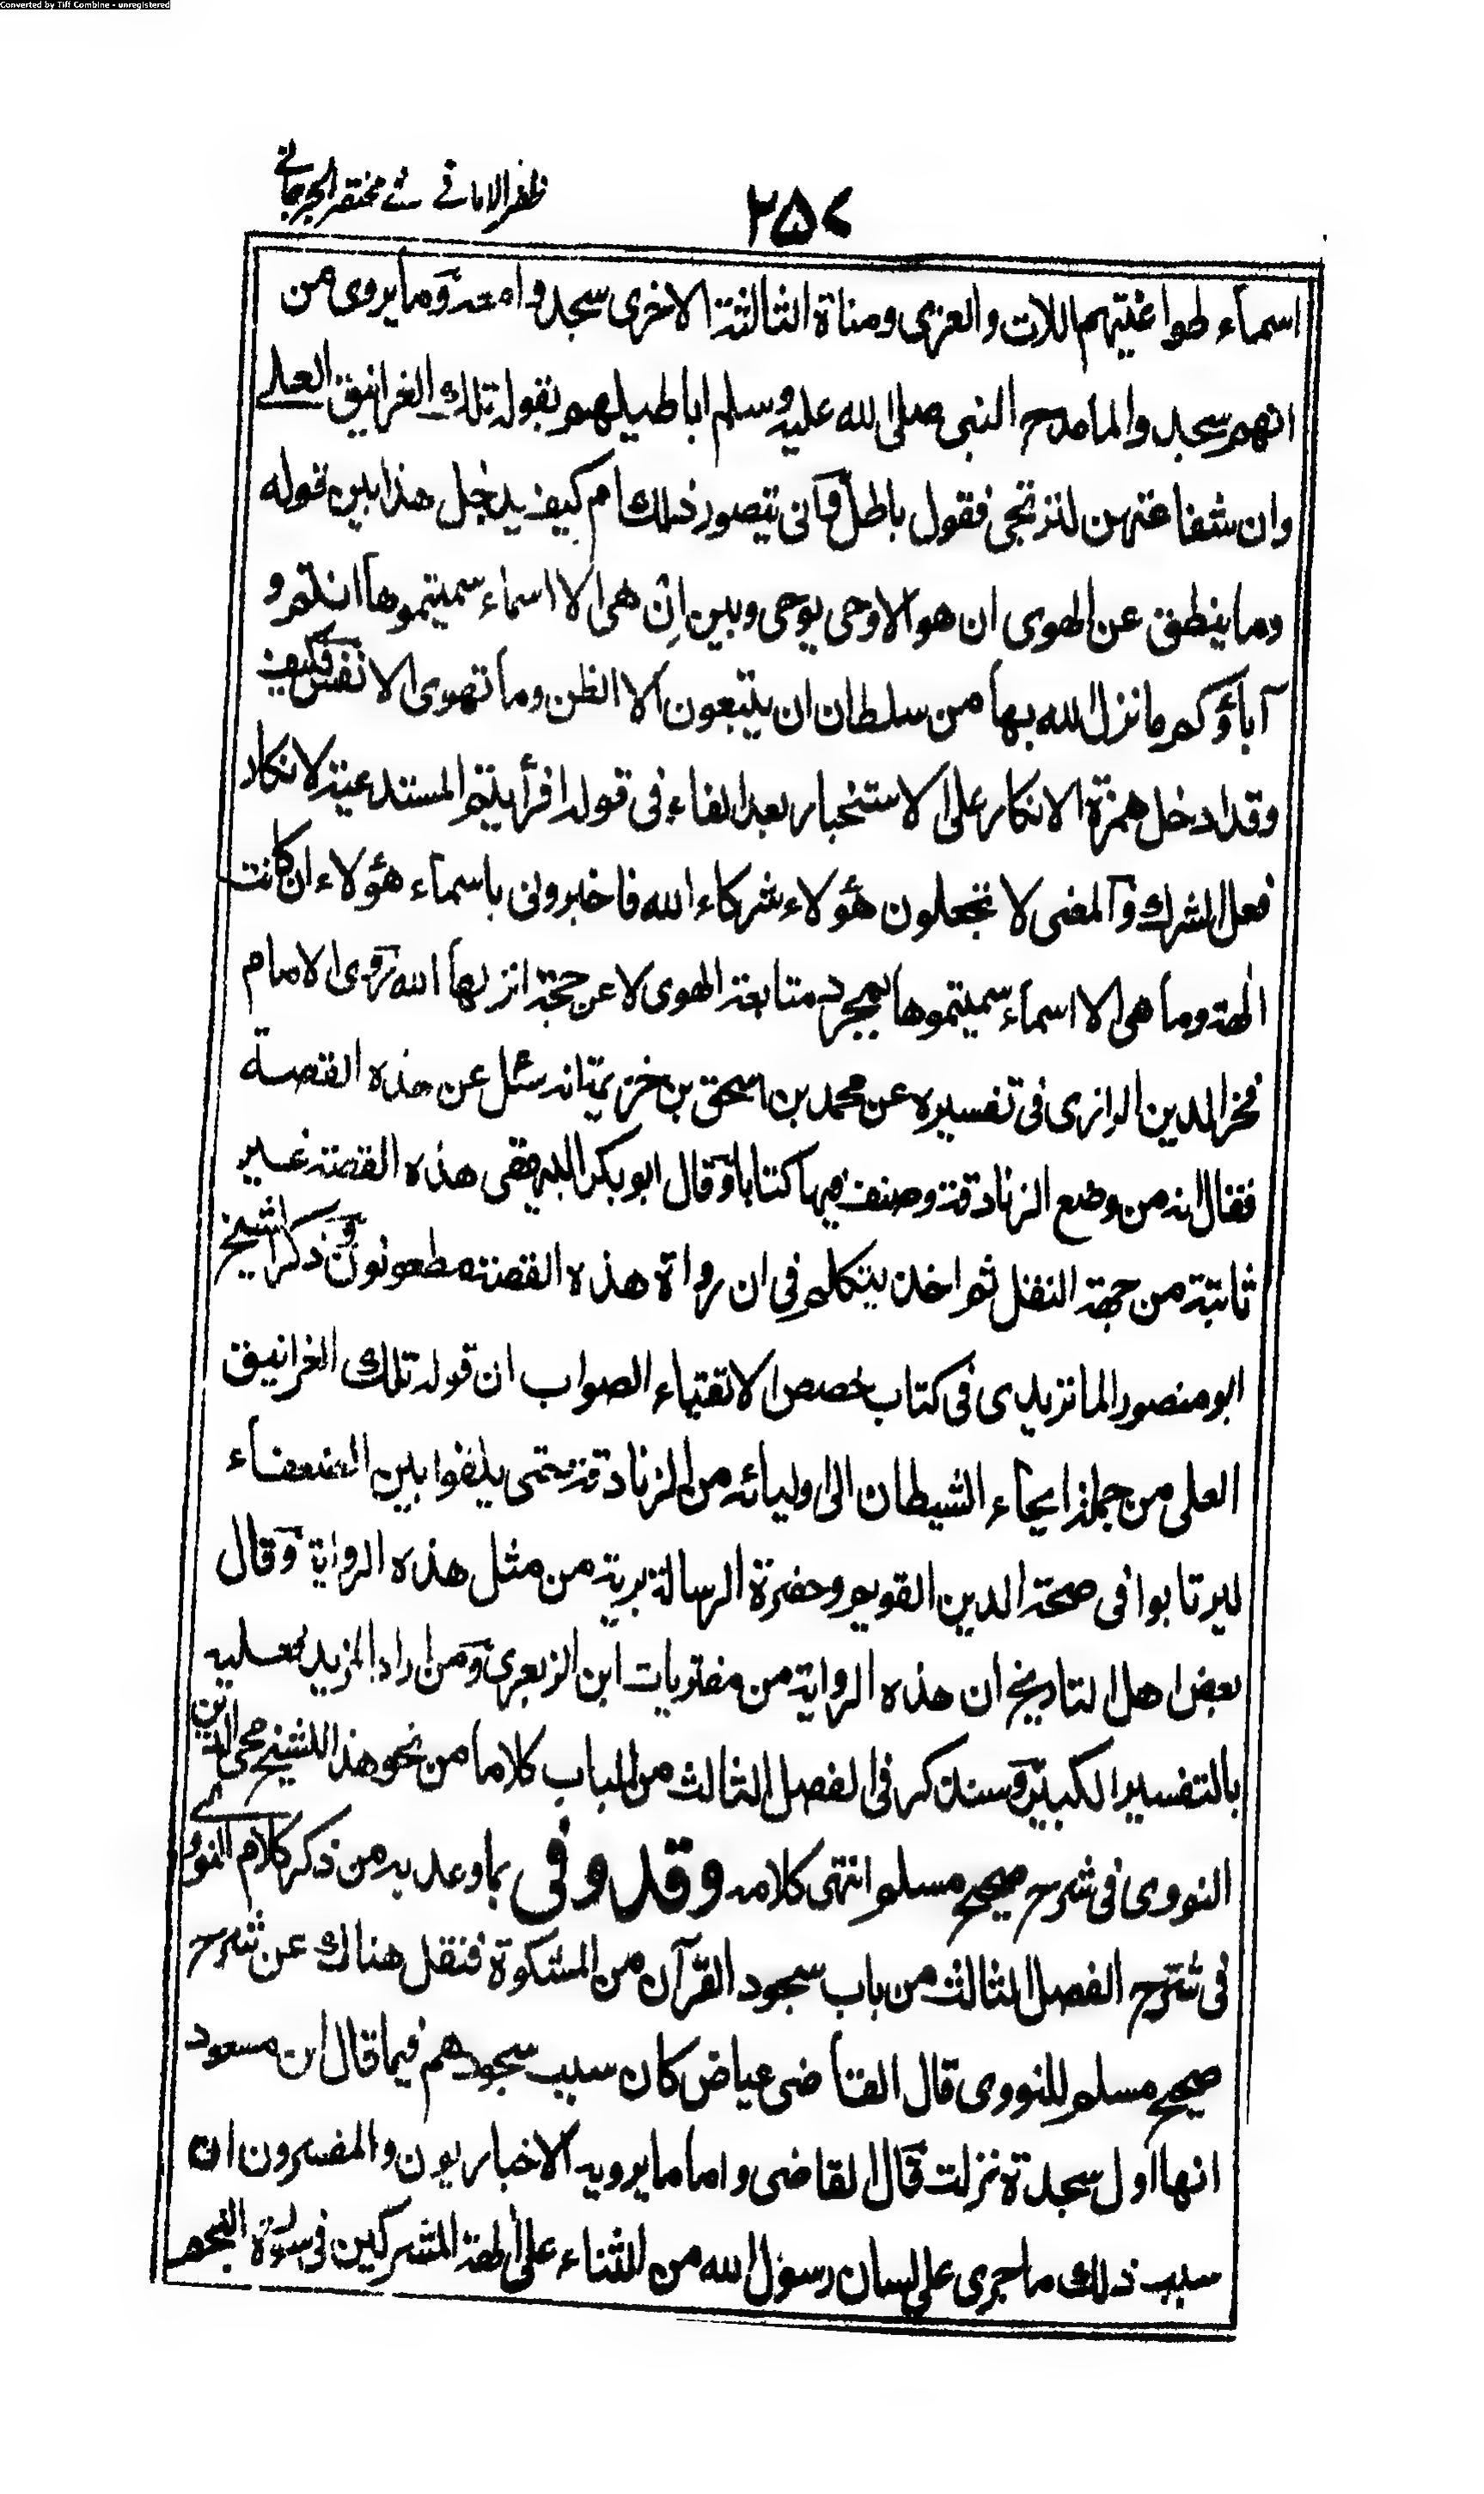 Converted by Tiff Combine - unregistered
ظفر الامانے فے مختصر الجرجانے
۲۵۷
اسماء طواغيتهم اللات والعزى ومناة الثالثة الاخرى سجدوا معه وما يروى من
انهم سجدوا لما مدح النبى صلى الله عليه وسلم اباطيلهم بقوله تلك الغرانيق العلے
وان شفاعتهن لترتجى فقول باطل وانى يتصور ذلك ام كيف يدخل هذا بين قوله
وما ينطق عن الهوى ان هو الا وحى يوحى وبين ان هى الا اسماء سميتموها انتم و
آباؤكم ما نزل الله بها من سلطان ان يتبعون الا الظن وما تهوى الانفس فكيف
وقد ادخل همزة الانكار على الاستخبار بعد الفاء فى قوله افرأيتم المستدعية لانكار
فعل الشرك والمعنى لا تجعلون هؤلاء شركاء الله فاخبرونى باسماء هؤلاء ان كانت
الهة وما هى الا اسماء سميتموها بمجرد متابعة الهوى لا عن حجة انزلها الله روى الامام
فخر الدين الرازى فى تفسيره عن محمد بن اسحق بن خزيمة انه سئل عن هذه القصة
فقال انه من وضع الزنادقة وصنف فيها كتابا وقال ابو بكر البيهقى هذه القصة غير
ثابتة من جهة النقل ثم اخذ يتكلم فى ان رواة هذه القصة مطعونون وذكر الشيخ
ابو منصور الماتريدى فى كتاب خصص الاتقياء الصواب ان قوله تلك الغرانيق
العلى من جملة ايحاء الشيطان الى اوليائه من الزنادقة حتى يلقوا بين الضعفاء
ليرتابوا فى صحة الدين القويم وحضرة الرسالة برية من مثل هذه الرواية وقال
بعض اهل التاريخ ان هذه الرواية من مفتريات ابن الزبعرى ومن اراد المزيد فعليه
بالتفسير الكبير وسنذكر فى الفصل الثالث من الباب كلاما من نحو هذا للشيخ محى الدين
النووى فى شرح صحيح مسلم انتهى كلامه وقد وفى بما وعد به من ذكر كلام النووے
فى شرح الفصل الثالث من باب سجود القرآن من المشكوة فنقل هناك عن شرح
صحيح مسلم للنووى قال القاضى عياض كان سبب سجودهم فيما قال ابن مسعود
انها اول سجدة نزلت قال القاضى واما ما يرويه الاخباريون والمفسرون ان
سبب ذلك ما جرى على لسان رسول الله من الثناء على الهة المشركين فى سورة النجم